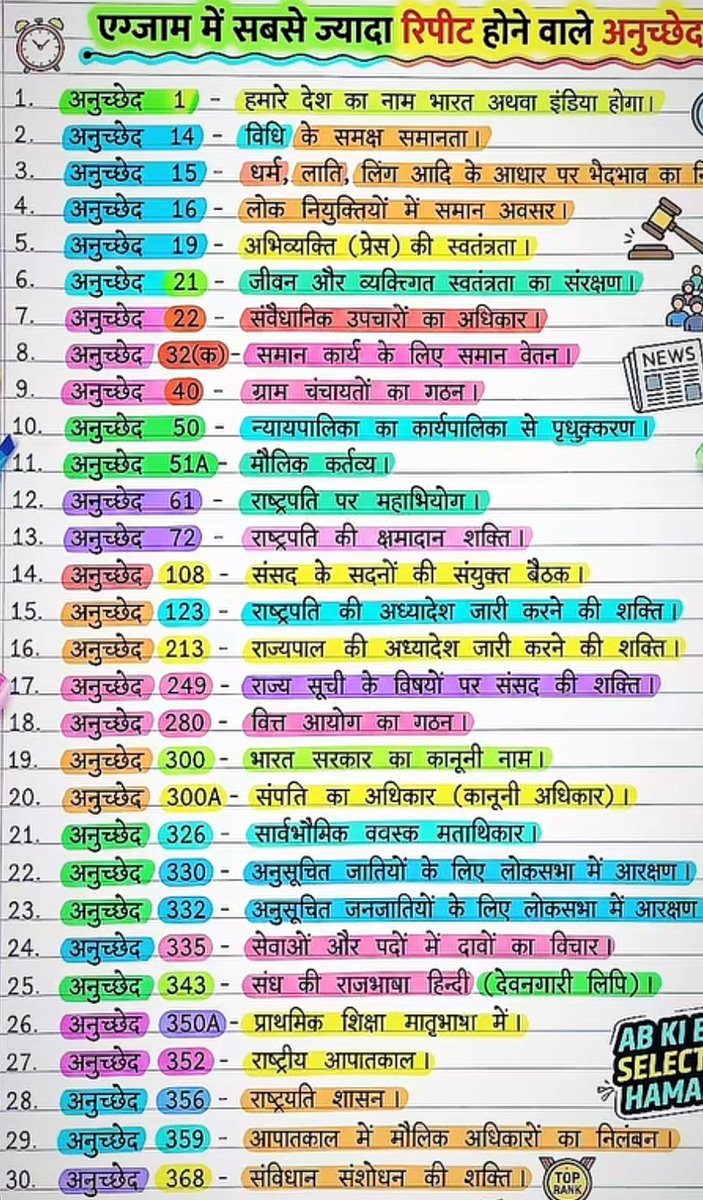 एग्जाम में सबसे ज्यादा रिपीट होने वाले अनुच्छेद
1. अनुच्छेद 1 - हमारे देश का नाम भारत अथवा इंडिया होगा।
2. अनुच्छेद 14 - विधि के समक्ष समानता।
3. अनुच्छेद 15 - धर्म, लाति, लिंग आदि के आधार पर भेदभाव का
4. अनुच्छेद 16 - लोक नियुक्तियों में समान अवसर।
5. अनुच्छेद 19 - अभिव्यक्ति (प्रेस) की स्वतंत्रता।
6. अनुच्छेद 21 - जीवन और व्यक्त्गित स्वतंत्रता का संरक्षण।
7. अनुच्छेद 22 - संवैधानिक उपचारों का अधिकार।
8. अनुच्छेद 32(क) - समान कार्य के लिए समान वेतन।
9. अनुच्छेद 40 - ग्राम चंचायतों का गठन।
10. अनुच्छेद 50 - न्यायपालिका का कार्यपालिका से पृधुक्करण।
11. अनुच्छेद 51A - मौलिक कर्तव्य।
12. अनुच्छेद 61 - राष्ट्रपति पर महाभियोग।
13. अनुच्छेद 72 - राष्ट्रपति की क्षमादान शक्ति।
14. अनुच्छेद 108 - संसद के सदनों की संयुक्त बैठक।
15. अनुच्छेद 123 - राष्ट्रपति की अध्यादेश जारी करने की शक्ति।
16. अनुच्छेद 213 - राज्यपाल की अध्यादेश जारी करने की शक्ति।
17. अनुच्छेद 249 - राज्य सूची के विषयों पर संसद की शक्ति।
18. अनुच्छेद 280 - वित्त आयोग का गठन।
19. अनुच्छेद 300 - भारत सरकार का कानूनी नाम।
20. अनुच्छेद 300A - संपति का अधिकार (कानूनी अधिकार)।
21. अनुच्छेद 326 - सार्वभौमिक ववस्क मताथिकार।
22. अनुच्छेद 330 - अनुसूचित जातियों के लिए लोकसभा में आरक्षण।
23. अनुच्छेद 332 - अनुसूचित जनजातियों के लिए लोकसभा में आरक्षण
24. अनुच्छेद 335 - सेवाओं और पदों में दावों का विचार।
25. अनुच्छेद 343 - संध की राजभाषा हिन्दी (देवनागारी लिपि)।
26. अनुच्छेद 350A - प्राथमिक शिक्षा मातृभाषा में।
27. अनुच्छेद 352 - राष्ट्रीय आपातकाल।
28. अनुच्छेद 356 - राष्ट्रयति शासन।
29. अनुच्छेद 359 - आपातकाल में मौलिक अधिकारों का निलंबन।
30. अनुच्छेद 368 - संविधान संशोधन की शक्ति।
NEWS
AB KI
SELECT
HAMA
TOP
RANK